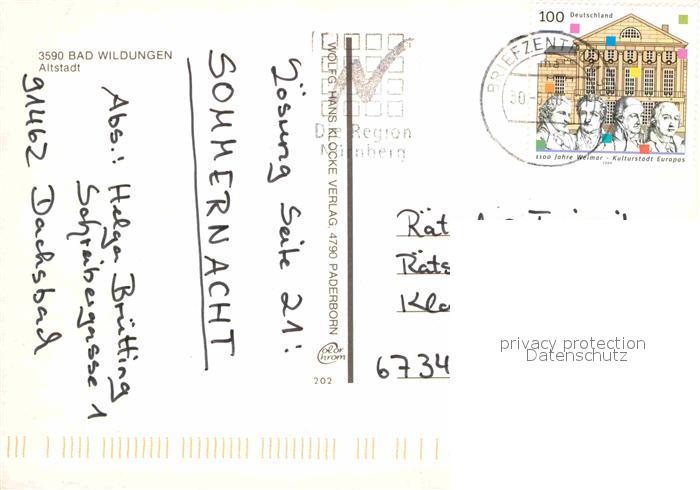 3590 BAD WILDUNGEN
Altstadt
Lösung Seite 21:
SOMMERNACHT
Abs.: Helga Brütting
Schreibergasse 1
91462 Dachsbad
WOLFG. HANS KLOCKE VERLAG. 4790 PADERBORN
Color
Chrom
202
Die Region
Nürnberg
BRIEFZENT
30.
100 Deutschland
1100 Jahre Weimar - Kulturstadt Europas
1999
Rät
Räts
Kla
6734
privacy protection
Datenschutz